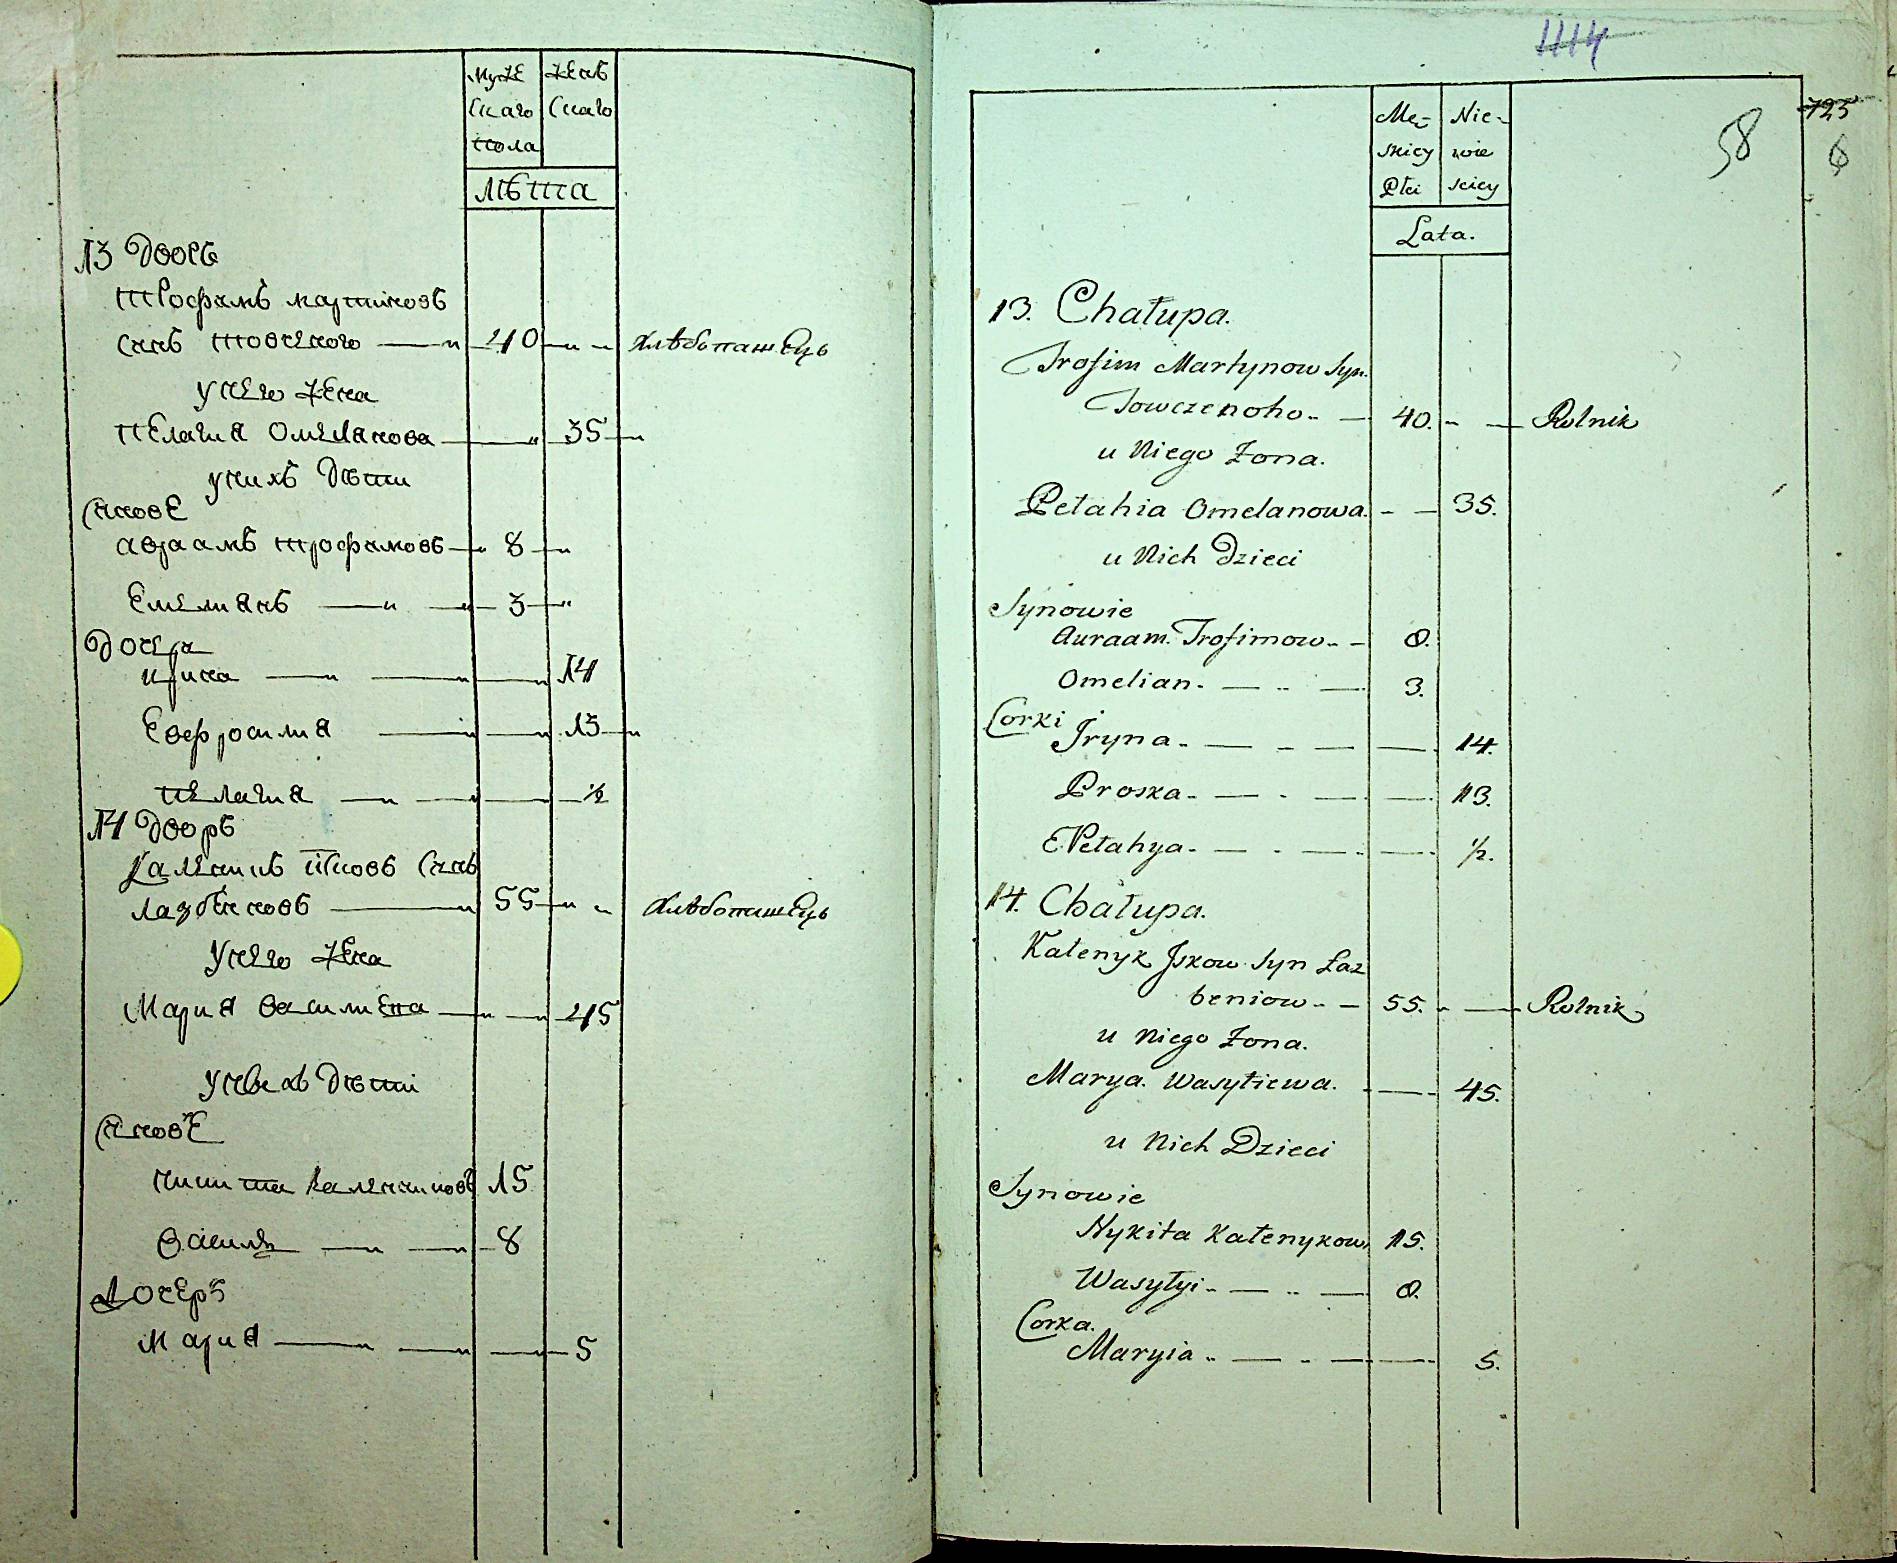 Муже
скаго
пола
Женъ
скаго
Лѣта
13 Дворъ
Трофимъ мартиновъ
синъ товченого 40 хлѣбопашецъ
у него жена
пелагия омелянова 35
у нихъ дѣти
синовѣ
авраамъ трофимовъ 8
Емелиянъ 3
дочера
ирина 14
Евфросимия 13
пелагия ½
14 Дворъ
Каленикъ Исковъ синъ
лазбѣниовъ 55 хлѣбопашецъ
у него жена
Мария василиева 45
у нихъ дѣти
синовѣ
никита калениковъ 15
василь 8
дочерь
Мария 5
1114
725
58
6
Mę-
skiey
Płci
Nie-
wie
sciey
Lata.
13. Chałupa.
Trofim Martynow Syn.
Towczenoho 40. Rolnik
u Niego Żona.
Pełahia Omelanowa. 35.
u Nich Dzieci
Synowie
Auraam. Trofimow 8.
Omelian. 3.
Corki
Jryna 14.
Proska 13.
Pełahya ½.
14. Chałupa.
Kałenyk Jskow Syn Łaz
beniow 55. Rolnik
u Niego Żona.
Marya. Wasyliewa. 45.
u Nich Dzieci
Synowie
Nykita Kałenykow 15.
Wasylyi 8.
Corka.
Maryia 5.